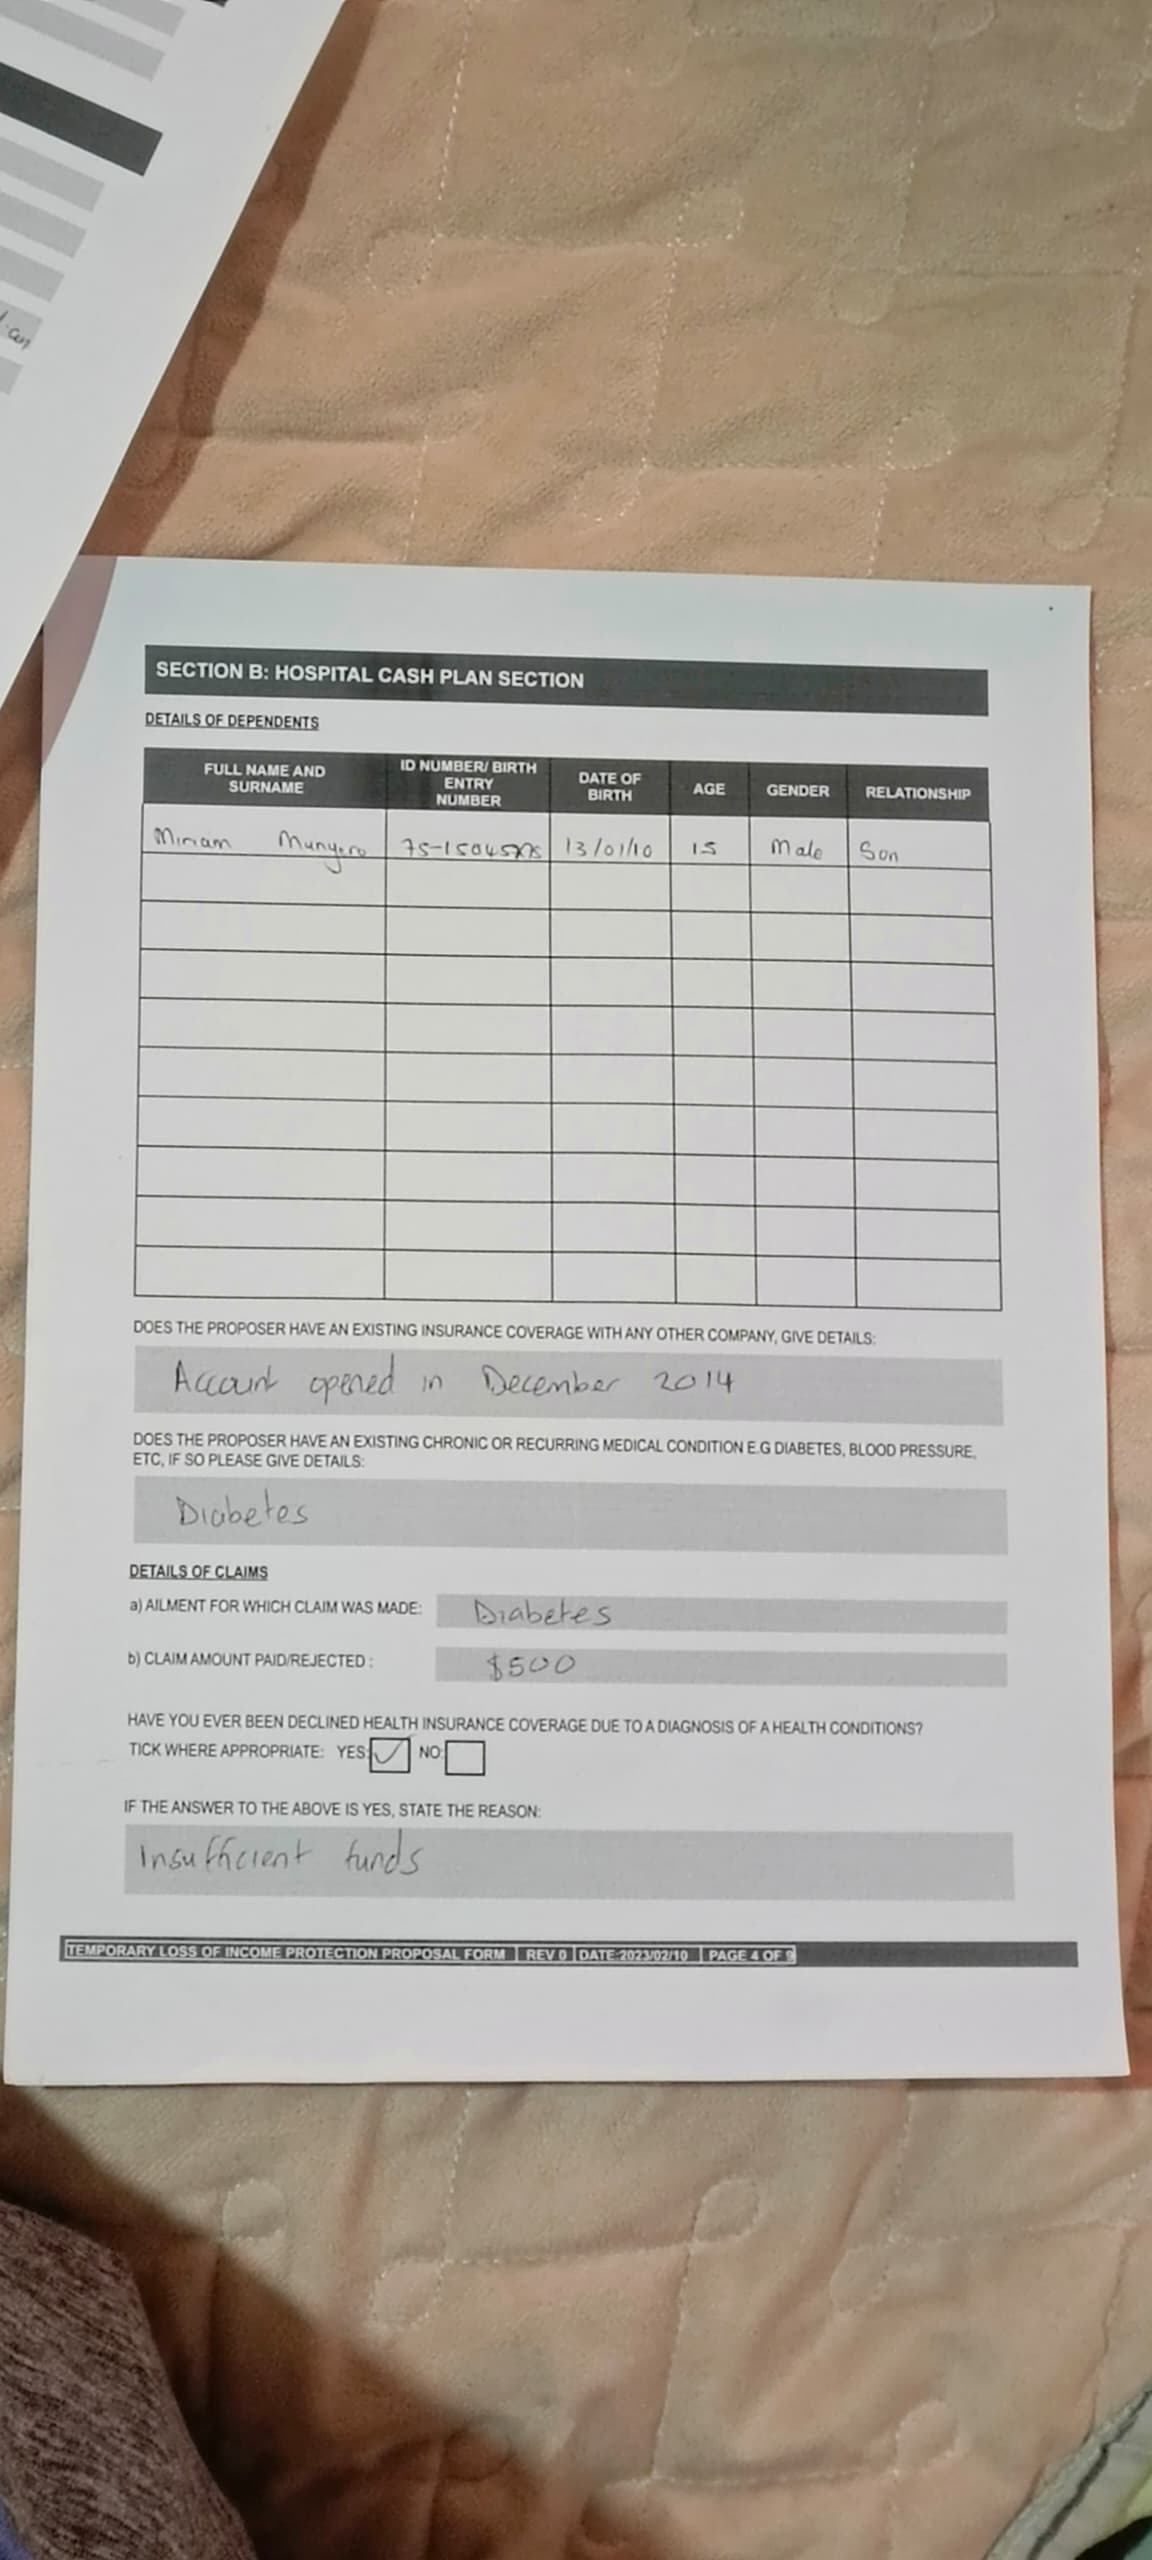 SECTION B: HOSPITAL CASH PLAN SECTION
DETAILS OF DEPENDENTS
FULL NAME AND SURNAME ID NUMBER/ BIRTH ENTRY NUMBER DATE OF BIRTH AGE GENDER RELATIONSHIP
Miriam Munyoro 13/01/10 15 Male Son
DOES THE PROPOSER HAVE AN EXISTING INSURANCE COVERAGE WITH ANY OTHER COMPANY, GIVE DETAILS:
Account opened in December 2014
DOES THE PROPOSER HAVE AN EXISTING CHRONIC OR RECURRING MEDICAL CONDITION E.G DIABETES, BLOOD PRESSURE,
ETC, IF SO PLEASE GIVE DETAILS:
Diabetes
DETAILS OF CLAIMS
a) AILMENT FOR WHICH CLAIM WAS MADE: Diabetes
b) CLAIM AMOUNT PAID/REJECTED : $500
HAVE YOU EVER BEEN DECLINED HEALTH INSURANCE COVERAGE DUE TO A DIAGNOSIS OF A HEALTH CONDITIONS?
TICK WHERE APPROPRIATE: YES: NO:
IF THE ANSWER TO THE ABOVE IS YES, STATE THE REASON:
Insufficient funds
TEMPORARY LOSS OF INCOME PROTECTION PROPOSAL FORM | REV 0 | DATE:2023/02/10 | PAGE 4 OF 9